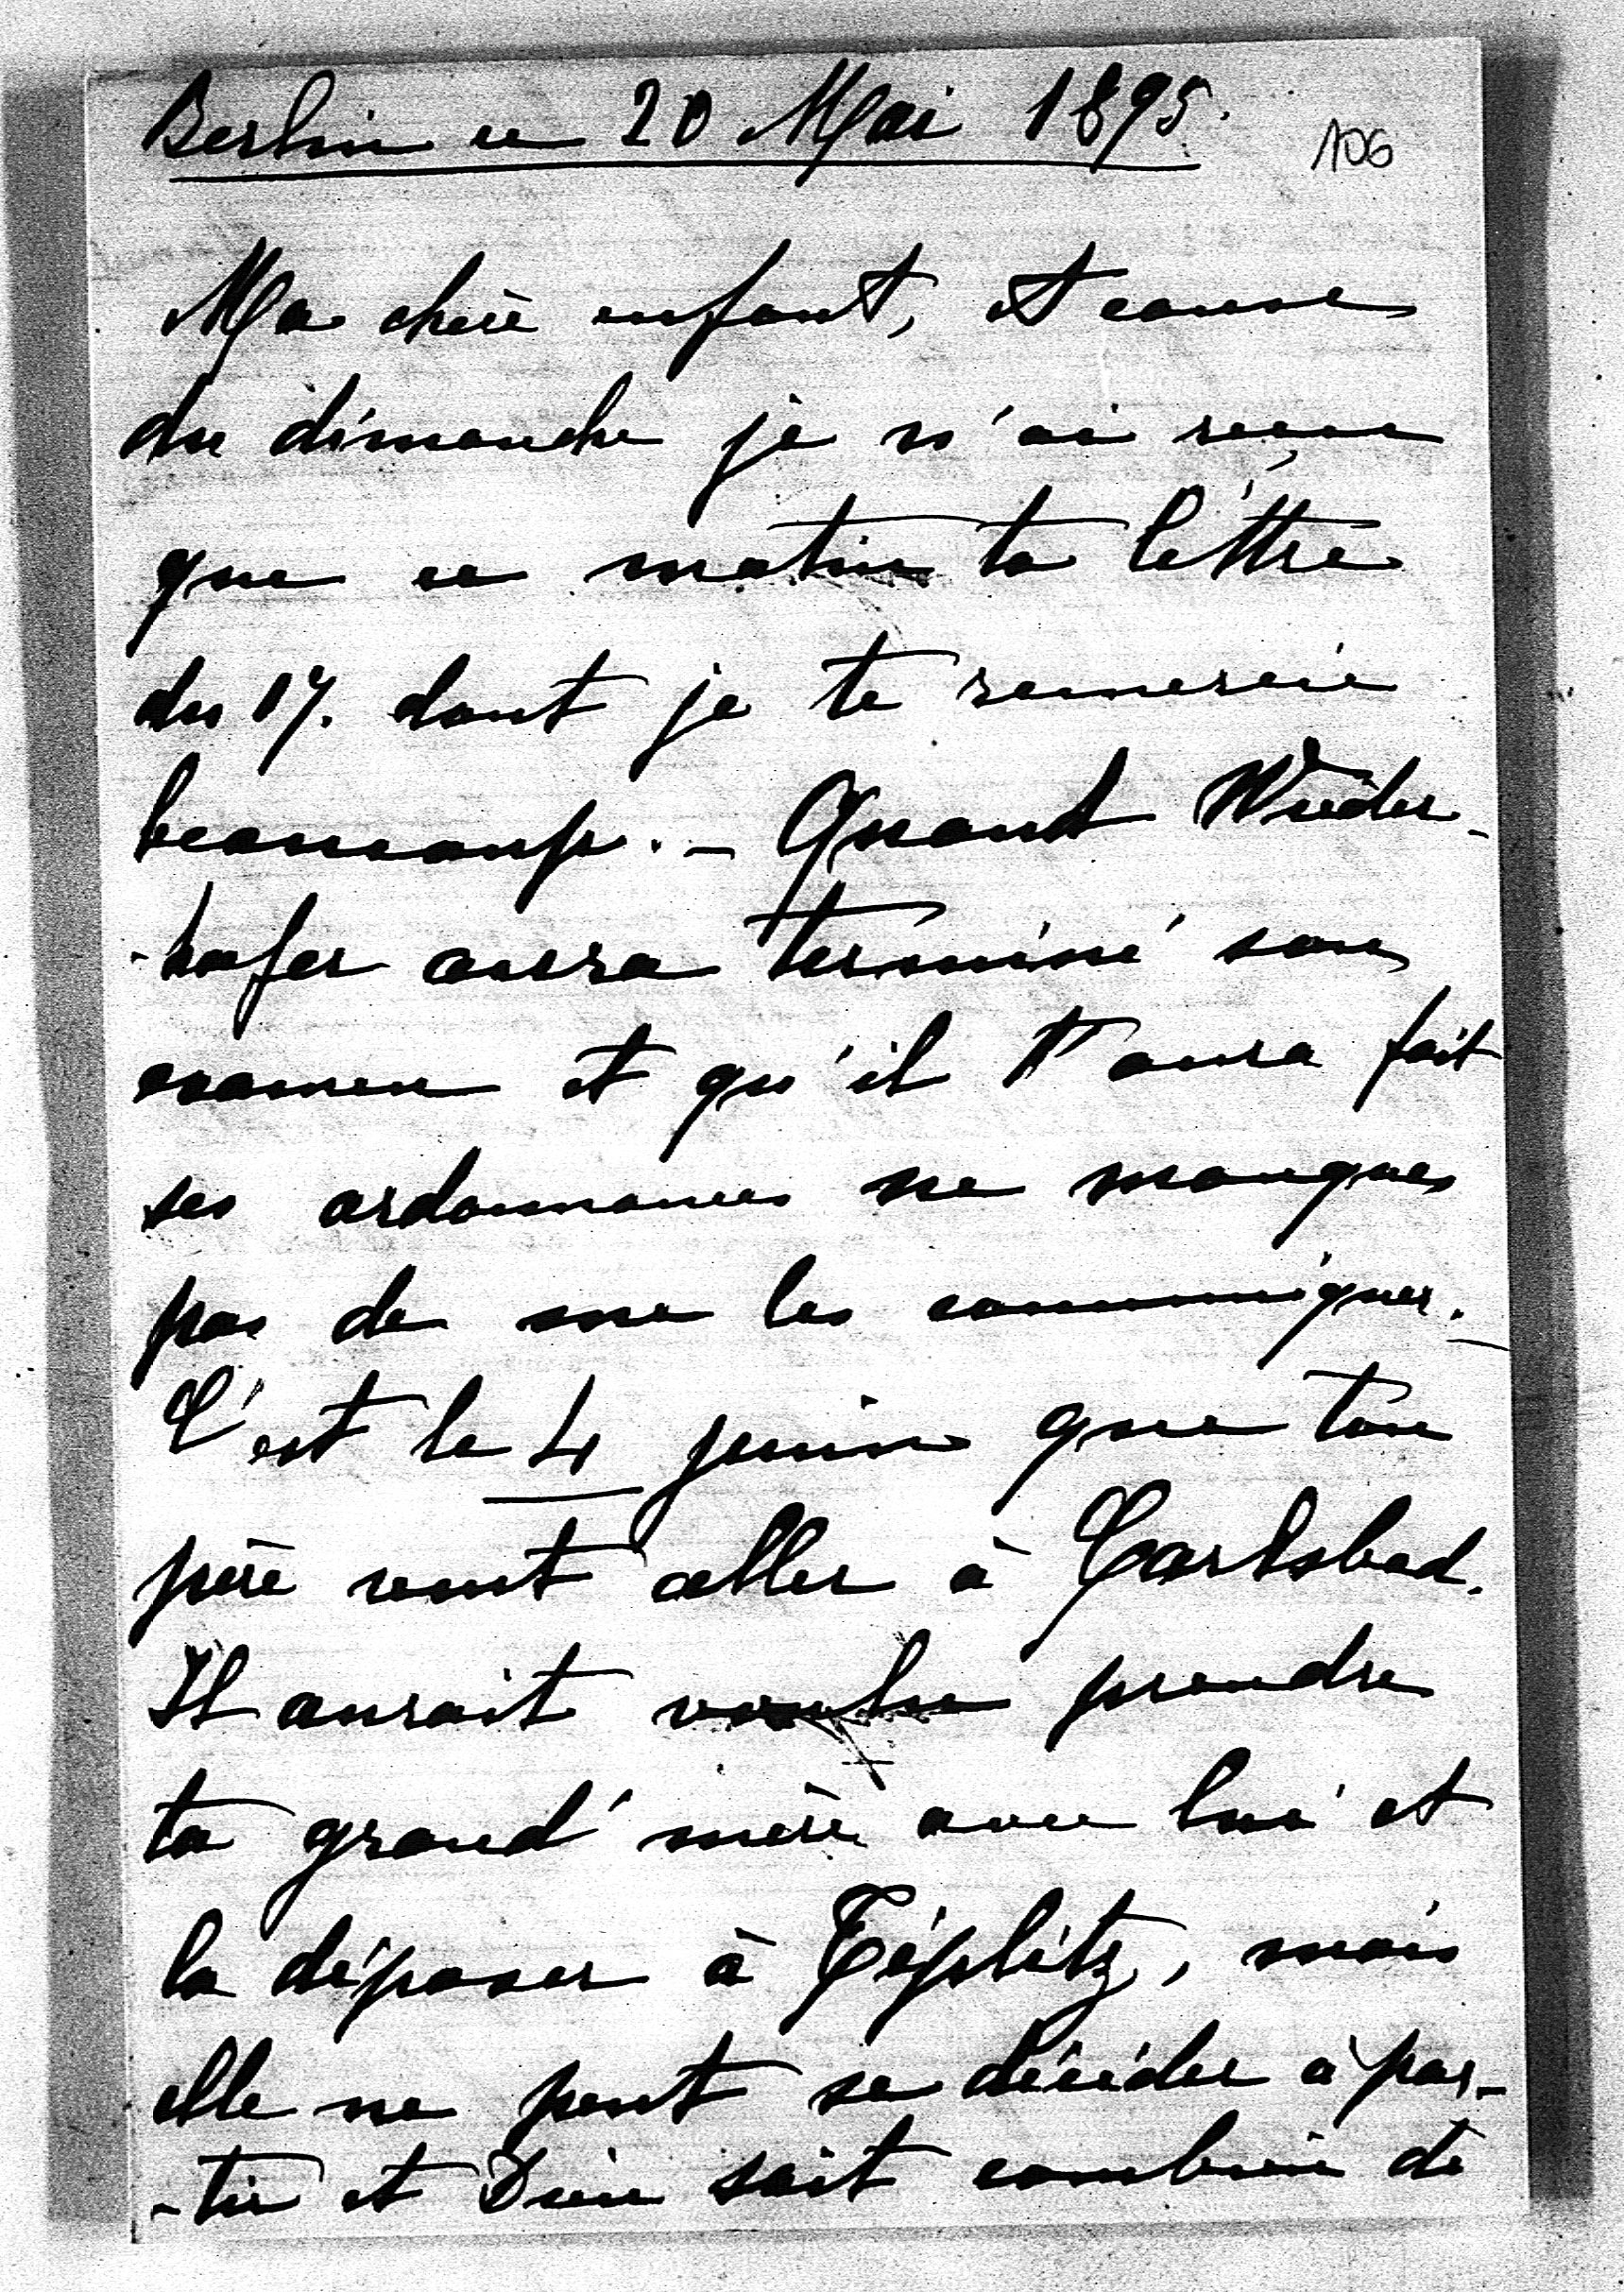 Berlin ce 20 Mai 1895.
106
Ma chère enfant, A cause
du dimanche je n'ai reçu
que ce matin ta léttre
du 17. dont je te remercie
beaucoup. – Quand Wieder-
-hofer aura terminé son
examen et qu'il t'aura fait
ses ordonnances ne manques
pas de me les communiquer. –
C'est le 4 juin que ton
père veut aller à Carlsbad.
Il aurait voulu prendre
ta grand' mère avec lui et
la déposer à Téplitz, mais
elle ne peut se décider à par-
-tir et Dieu sait combien de